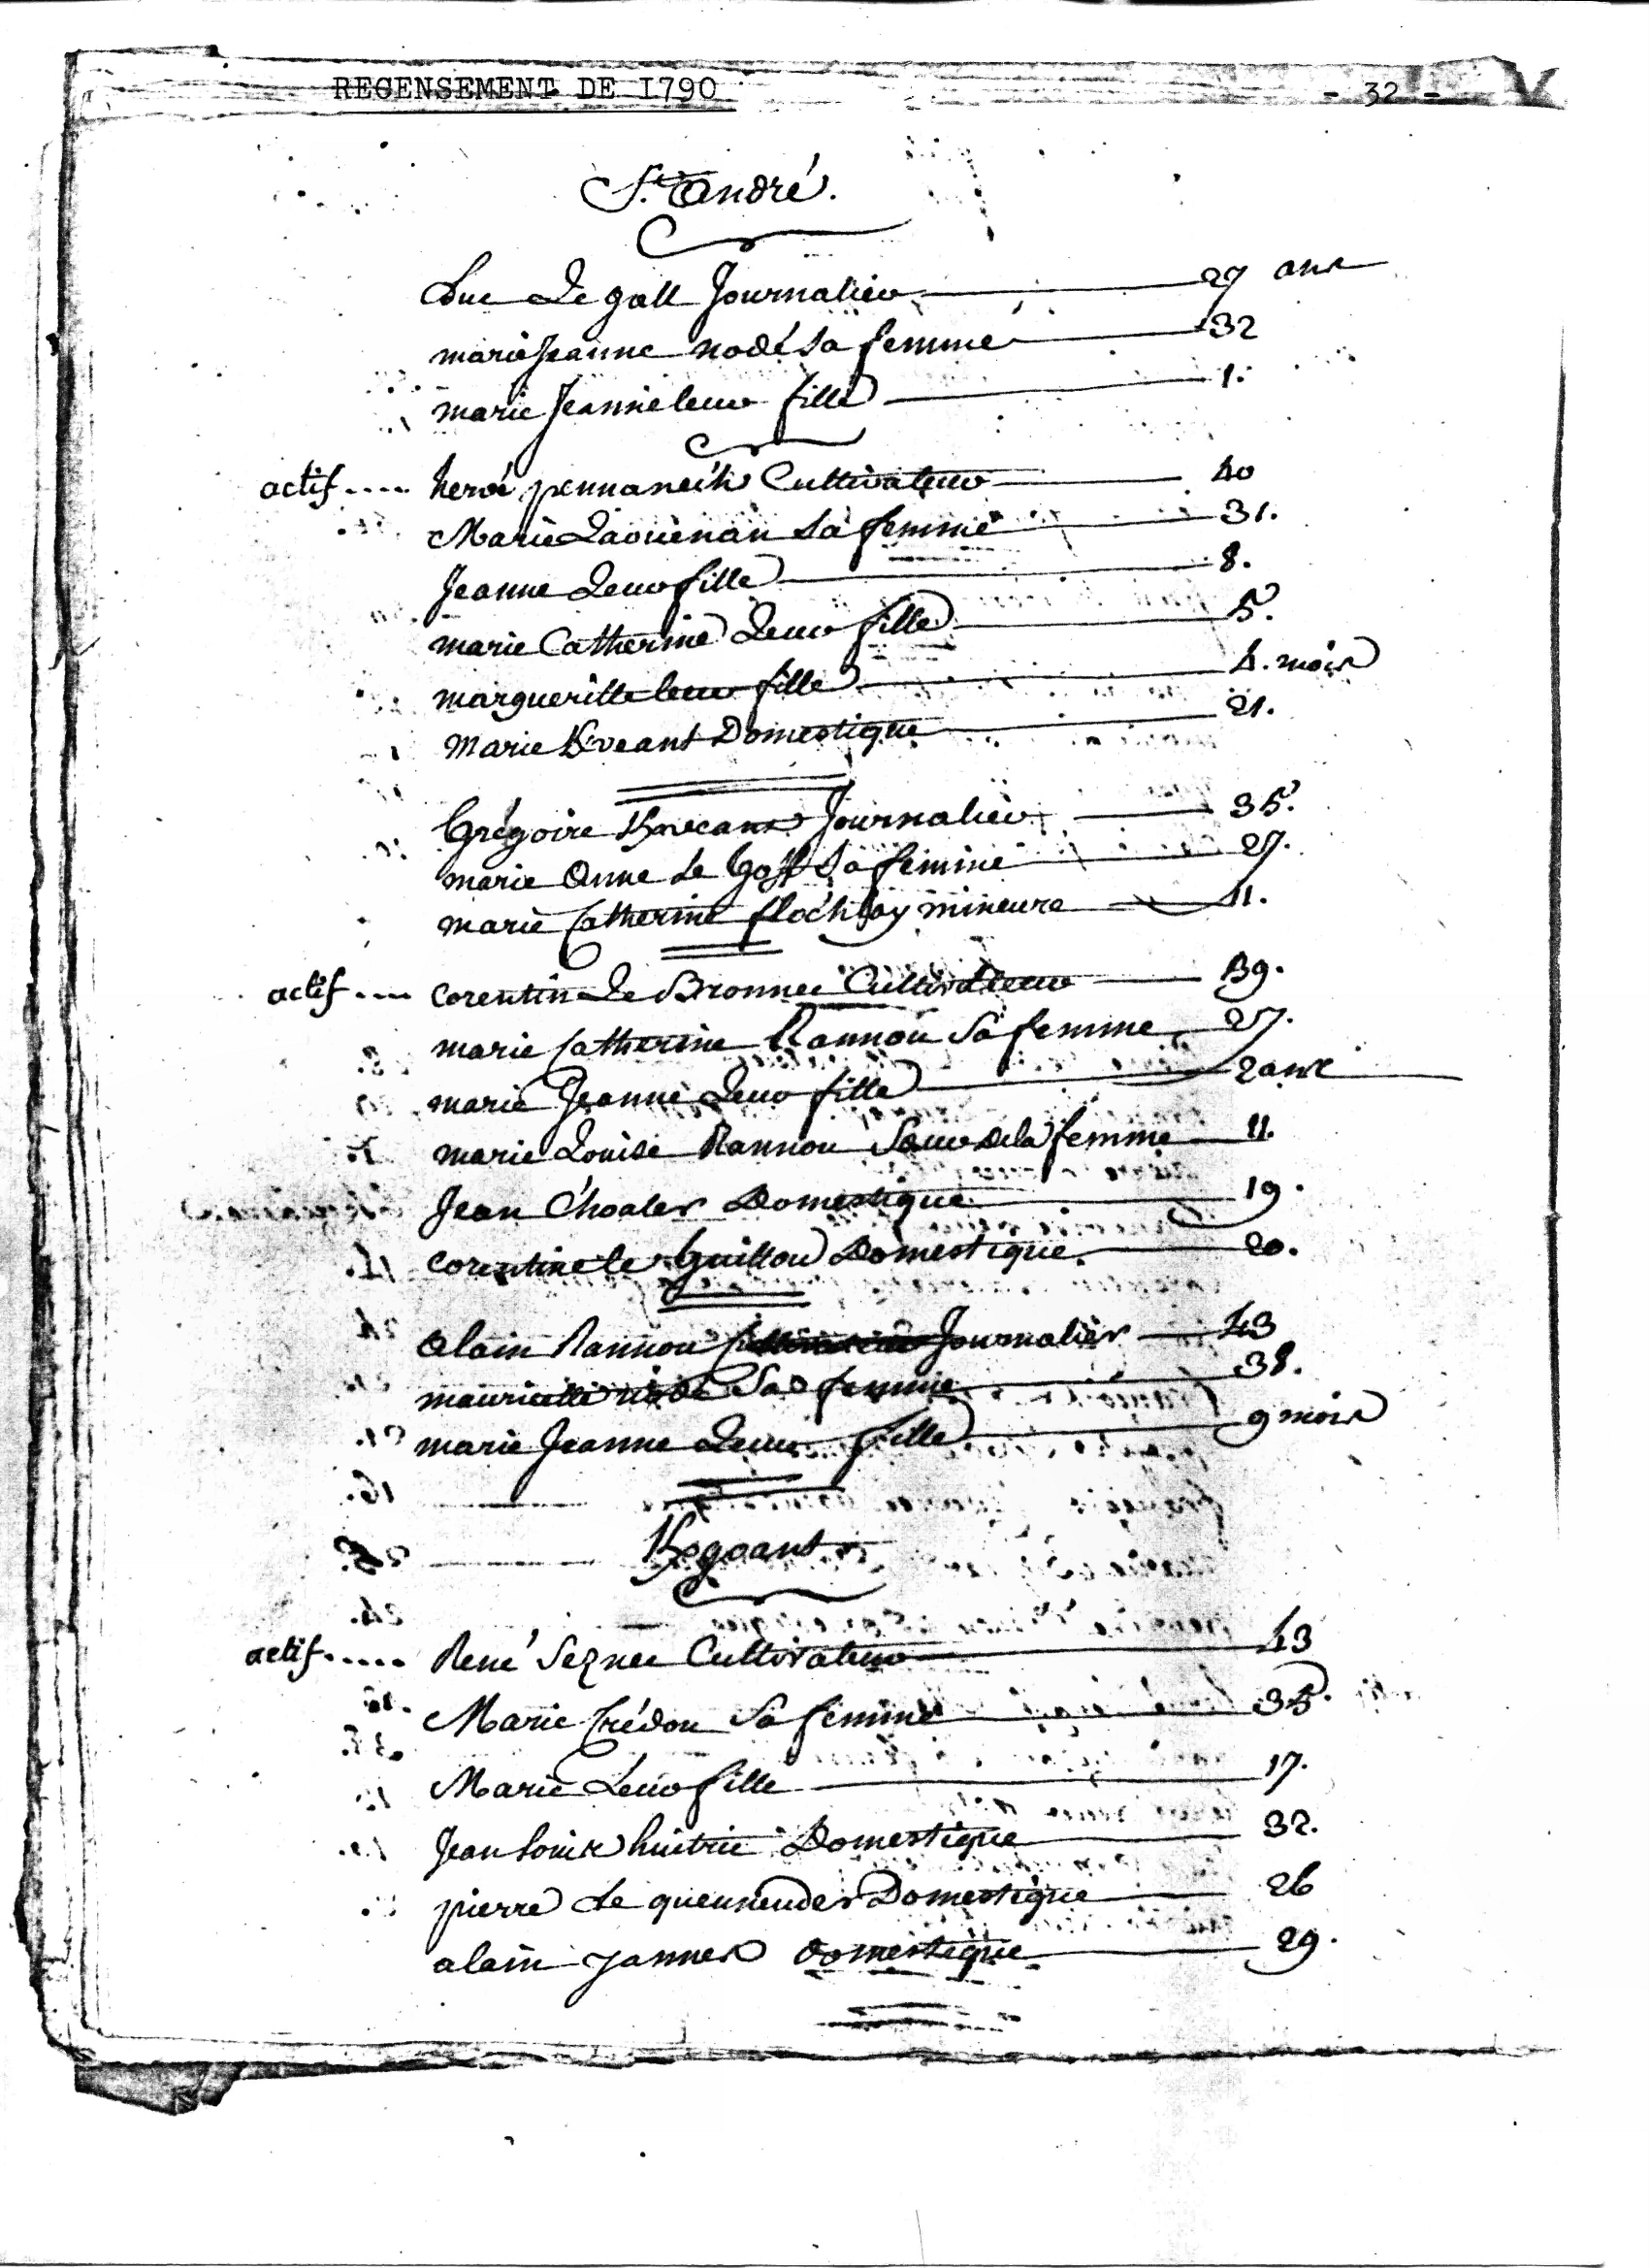 RECENSEMENT DE I790
- 32 -
St. André.
Luc Le gall Journalier 27 ans
marie Jeanne nodé sa femme 32
marie Jeanne leur fille 1.
actif.... hervé pennanec'h Cultivateur 40
Marie Laouënan sa femme 31.
Jeanne Leur fille 8.
marie Catherine Leur fille 5.
margueritte leur fille 4. mois
Marie Kveant Domestique 21.
Grégoire Journalier 35.
marie Anne Le Goff sa femme 27.
marie Catherine floc'hlay mineure 11.
actif.... corentin Le Bronnec Cultivateur 39.
marie Catherine Rannou sa femme 27.
marie Jeanne Leur fille 2 ans
marie Louise Rannou Soeur de la femme 11.
Jean C'hoaler Domestique 19.
corentine le Guillou Domestique. 20.
alain Rannou Journalier 43
mauricette nodé Sa femme 38.
marie Jeanne Leur fille 9 mois
Kgoant
actif..... René Seznec Cultivateur 43
Marie Crédou Sa femme 35.
Marie Leur fille 17.
Jean Louis huitric Domestique 32.
pierre Le queuneuder Domestique 26
alain Jannes domestique 29.